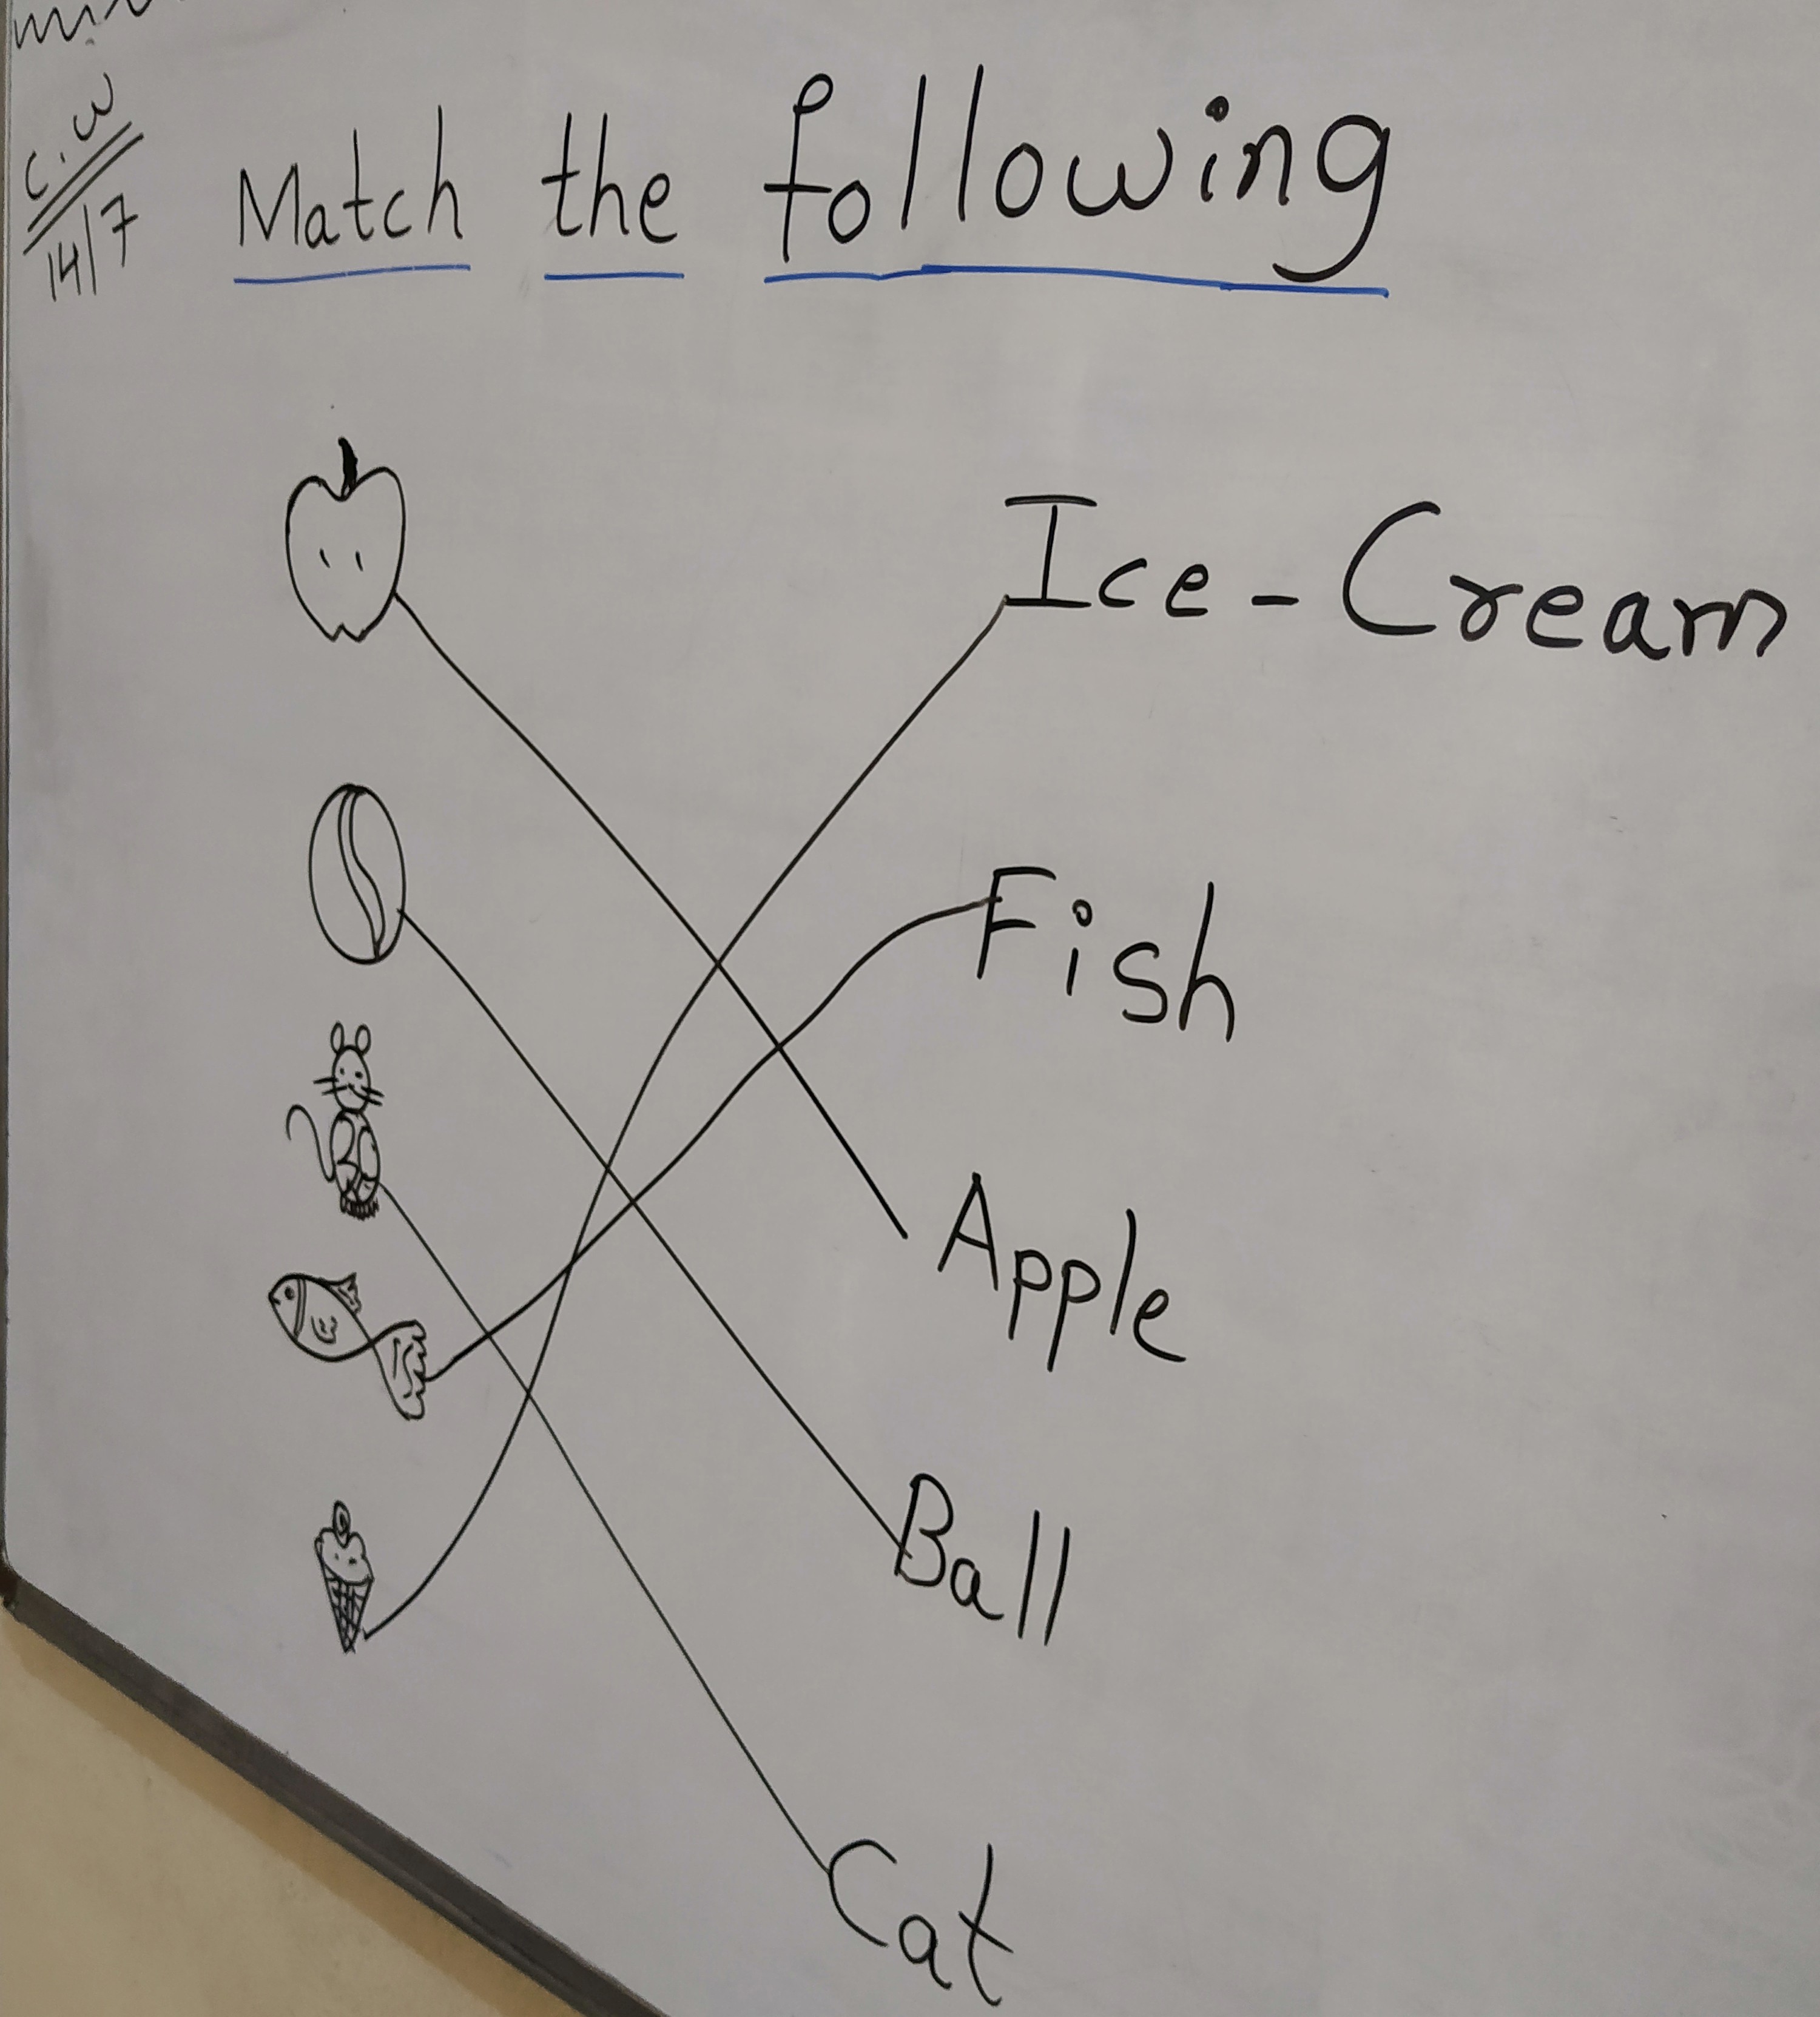 C.W
14/7
Match the following
Ice-Cream
Fish
Apple
Ball
Cat